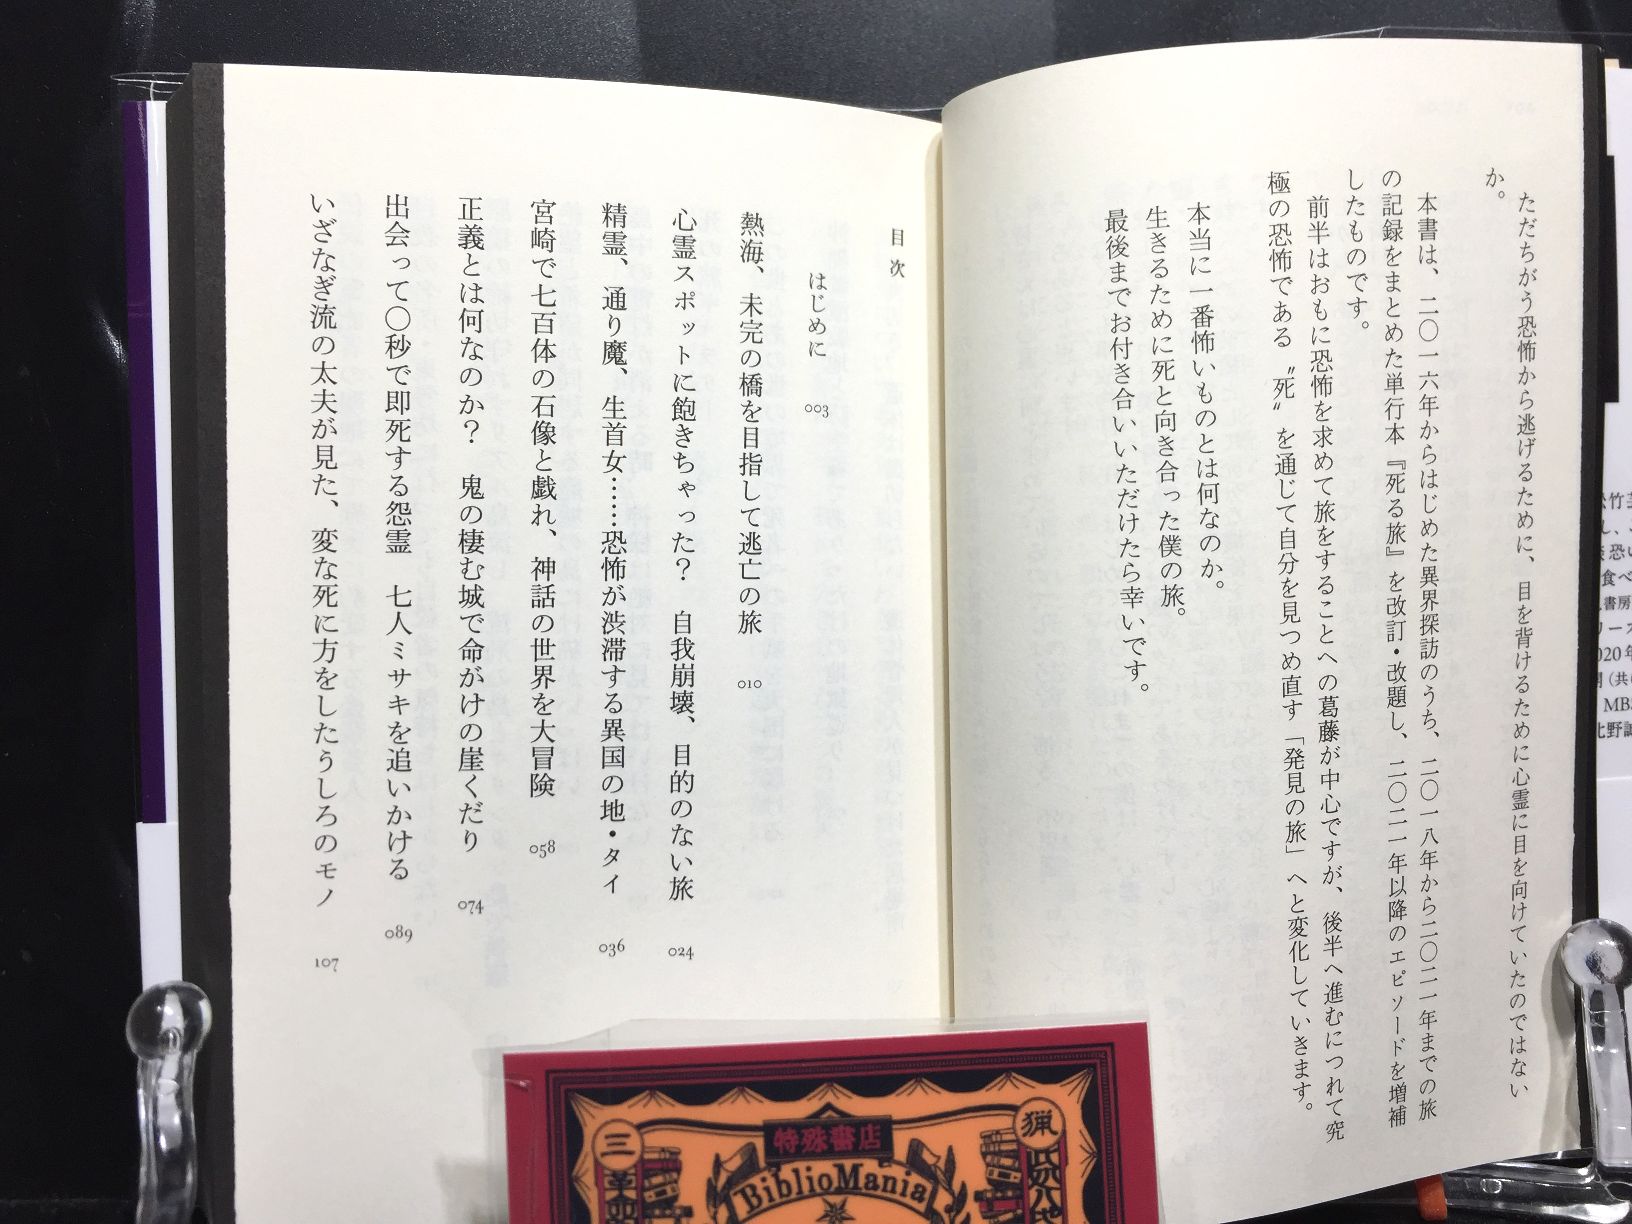 ただちがう恐怖から逃げるために、目を背けるために心霊に目を向けていたのではない
か。
本書は、二〇一六年からはじめた異界探訪のうち、二〇一八年から二〇二一年までの旅
の記録をまとめた単行本『死る旅』を改訂・改題し、二〇二一年以降のエピソードを増補
したものです。
前半はおもに恐怖を求めて旅をすることへの葛藤が中心ですが、後半へ進むにつれて究
極の恐怖である〝死〟を通じて自分を見つめ直す「発見の旅」へと変化していきます。
本当に一番怖いものとは何なのか。
生きるために死と向き合った僕の旅。
最後までお付き合いいただけたら幸いです。
目次
はじめに 003
熱海、未完の橋を目指して逃亡の旅 010
心霊スポットに飽きちゃった? 自我崩壊、目的のない旅 024
精霊、通り魔、生首女……恐怖が渋滞する異国の地・タイ 036
宮崎で七百体の石像と戯れ、神話の世界を大冒険 058
正義とは何なのか? 鬼の棲む城で命がけの崖くだり 074
出会って〇秒で即死する怨霊 七人ミサキを追いかける 089
いざなぎ流の太夫が見た、変な死に方をしたうしろのモノ 107
特殊書店
BiblioMania
三
猟
食べ
書房
020年
MBS
北野誠